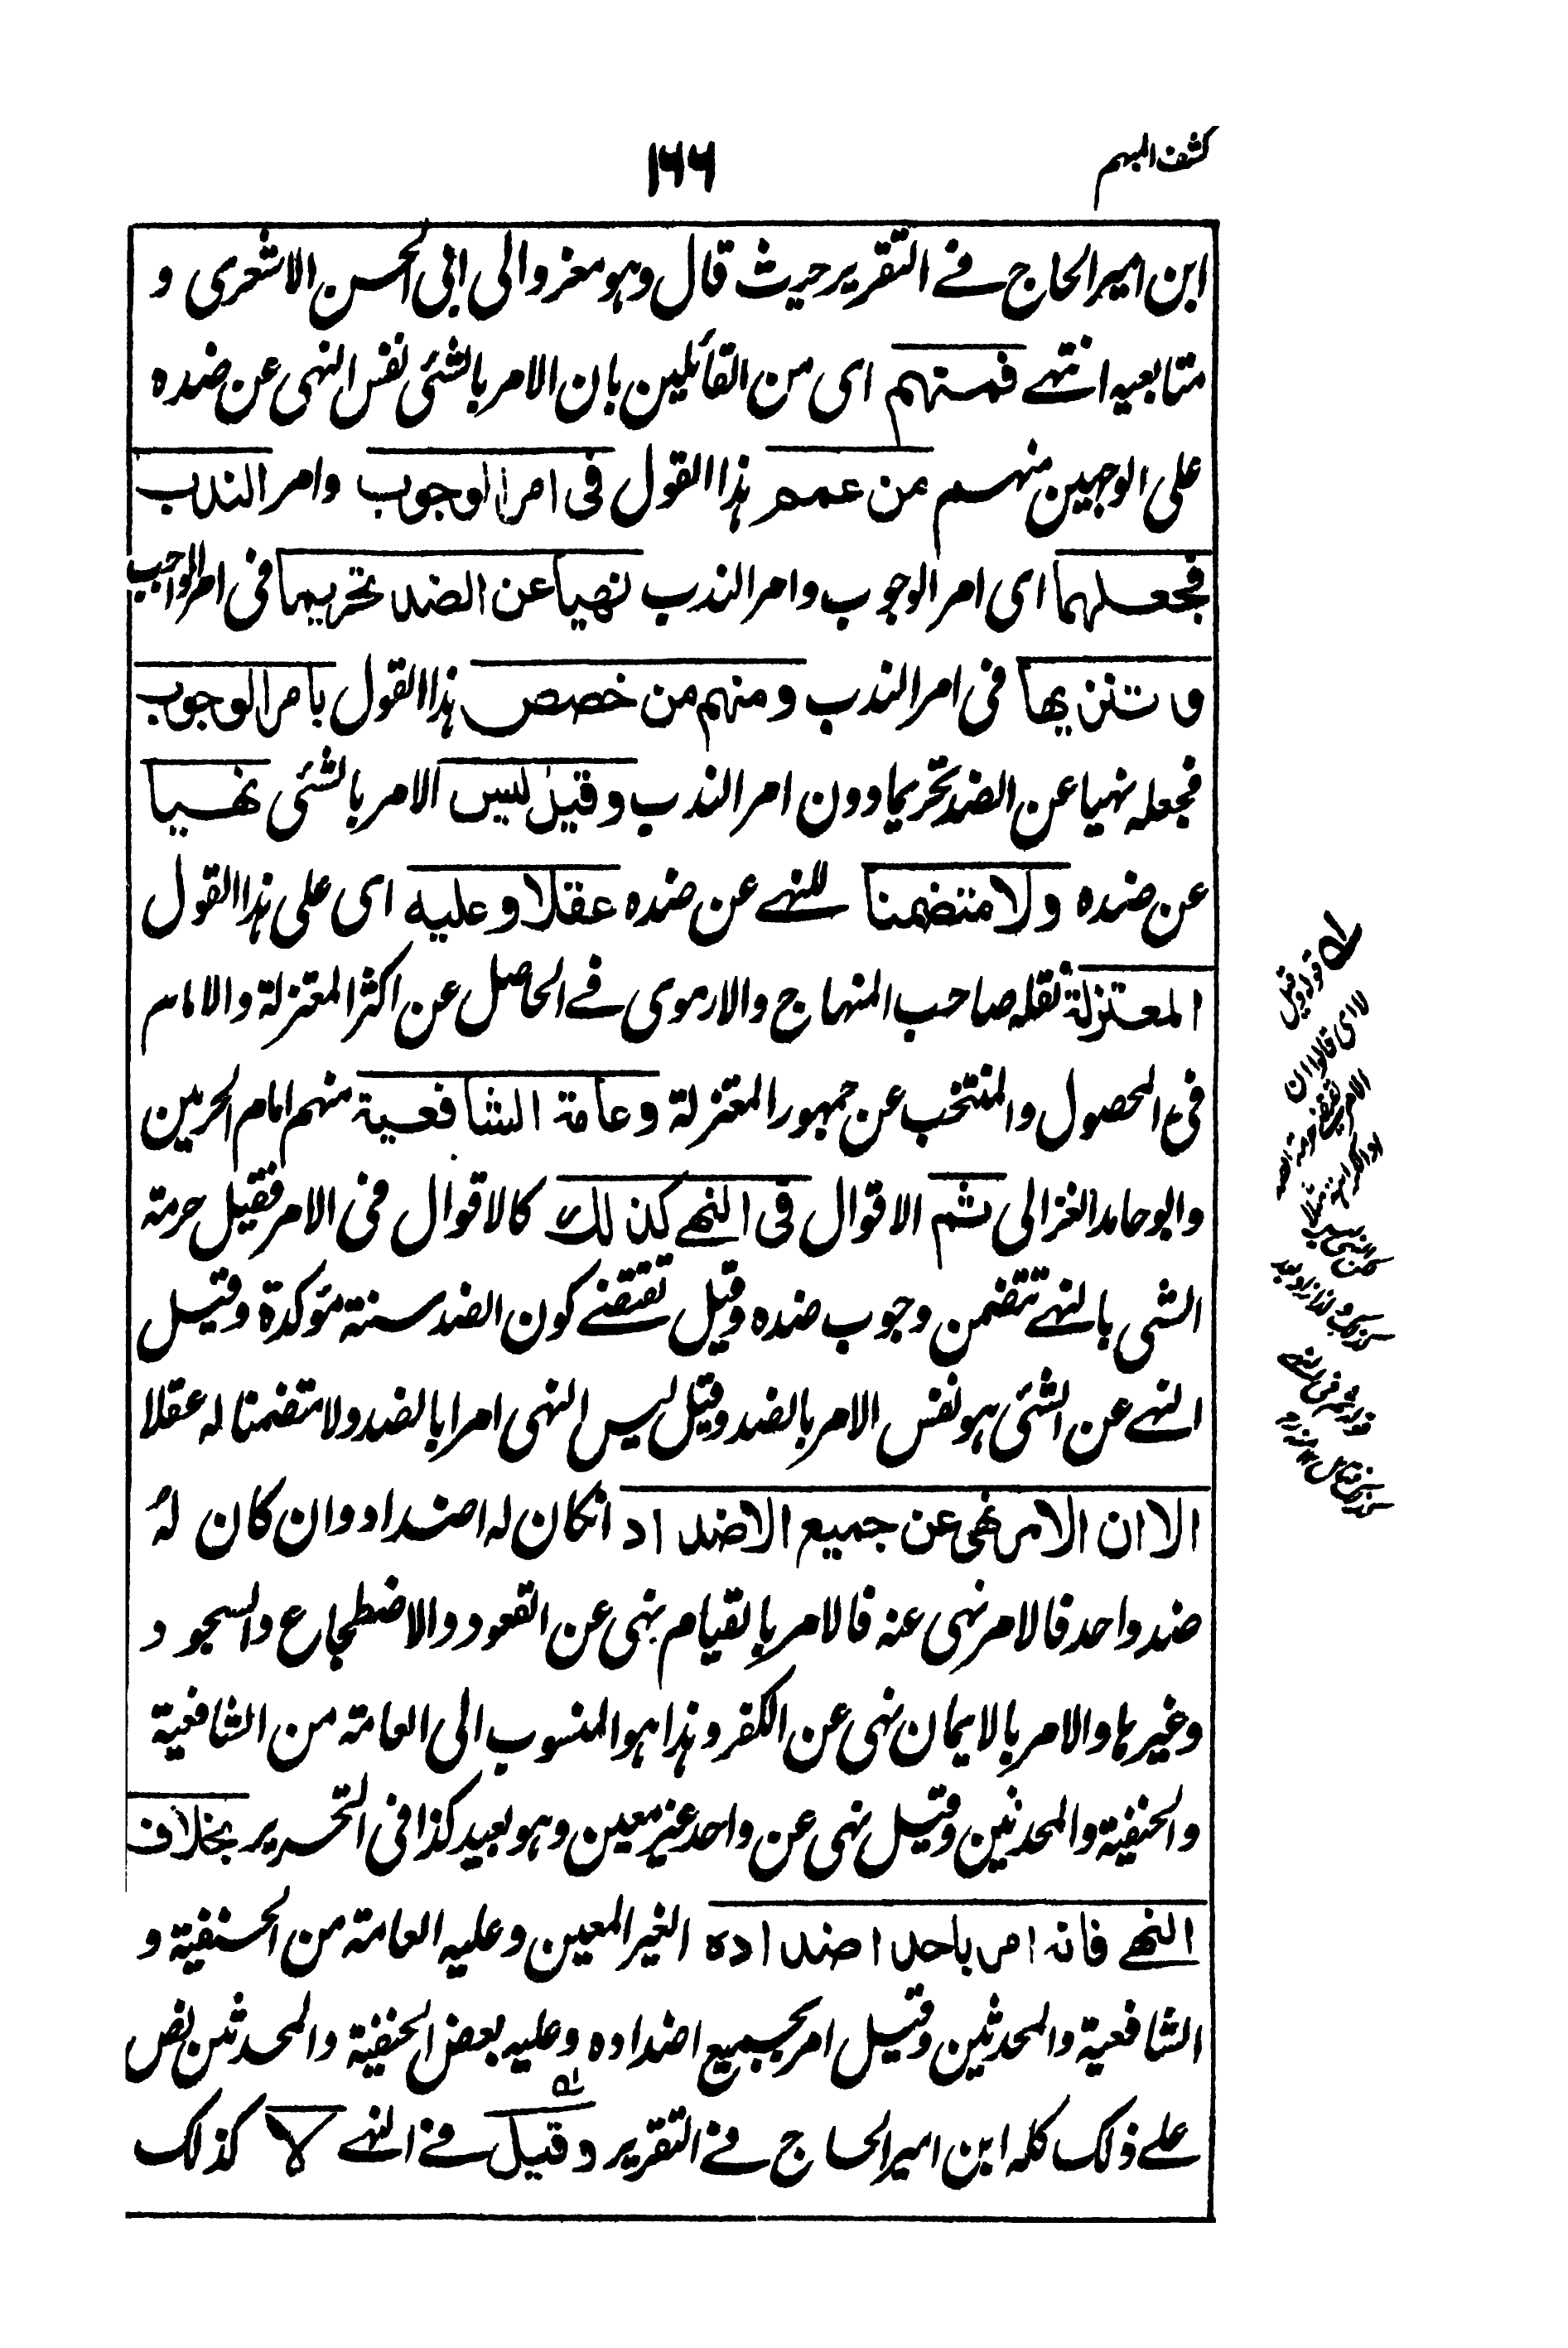 كشف المبهم
١٦٦
ابن امير الحاج فے التقرير حيث قال وهو معزو الى ابى الحسن الاشعرى و
متابعيه انتهے فمنهم اى من القائلين بان الامر بالشئى نفس النهى عن ضده
على الوجهين منهم من عمم هذا القول فى امر الوجوب وامر الندب
فجعلهما اى امر الوجوب وامر الندب نهيا عن الضد تحريما فى امر الواجب
وتنزيها فى امر الندب ومنهم من خصص هذا القول بامر الوجوب
فجعله نهيا عن الضد تحريما دون امر الندب وقيل ليس الامر بالشئى نهيا
عن ضده ولا متضمنا للنهے عن ضده عقلا وعليه اى على هذا القول
المعتزلة نقله صاحب المنهاج والارموى فے الحاصل عن اكثر المعتزلة والامام
فى المحصول والمنتخب عن جمهور المعتزلة وعامة الشافعية منهم امام الحرمين
وابو حامد الغزالى ثم الاقوال فى النهے كذلك كالاقوال فى الامر فقيل حرمة
الشى بالنهے تتضمن وجوب ضده وقيل تقتضے كون الضد سنة مؤكدة وقيل
النهے عن الشئى هو نفس الامر بالضد وقيل ليس النهى امرا بالضد ولا متضمنا له عقلا
الا ان الامر نهى عن جميع الاضداد انكان له اضداد وان كان له
ضد واحد فالامر نهى عنه فالامر بالقيام نهى عن القعود والاضطجاع والسجود
وغيرها والامر بالايمان نهى عن الكفر وهذا هو المنسوب الى العامة من الشافعية
والحنفية والمحدثين وقيل نهى عن واحد غير معين وهو بعيد كذا فى التحرير بخلاف
النهے فانه امر باحد اضداده الغير المعين وعليه العامة من الحنفية و
الشافعية والمحدثين وقيل امر بجميع اضداده وعليه بعض الحنفية والمحدثين نص
علے ذلك كله ابن امير الحاج فے التقرير وقيل فے النهے لا كذلك
قوله وقيل
لا اى قالوا ان